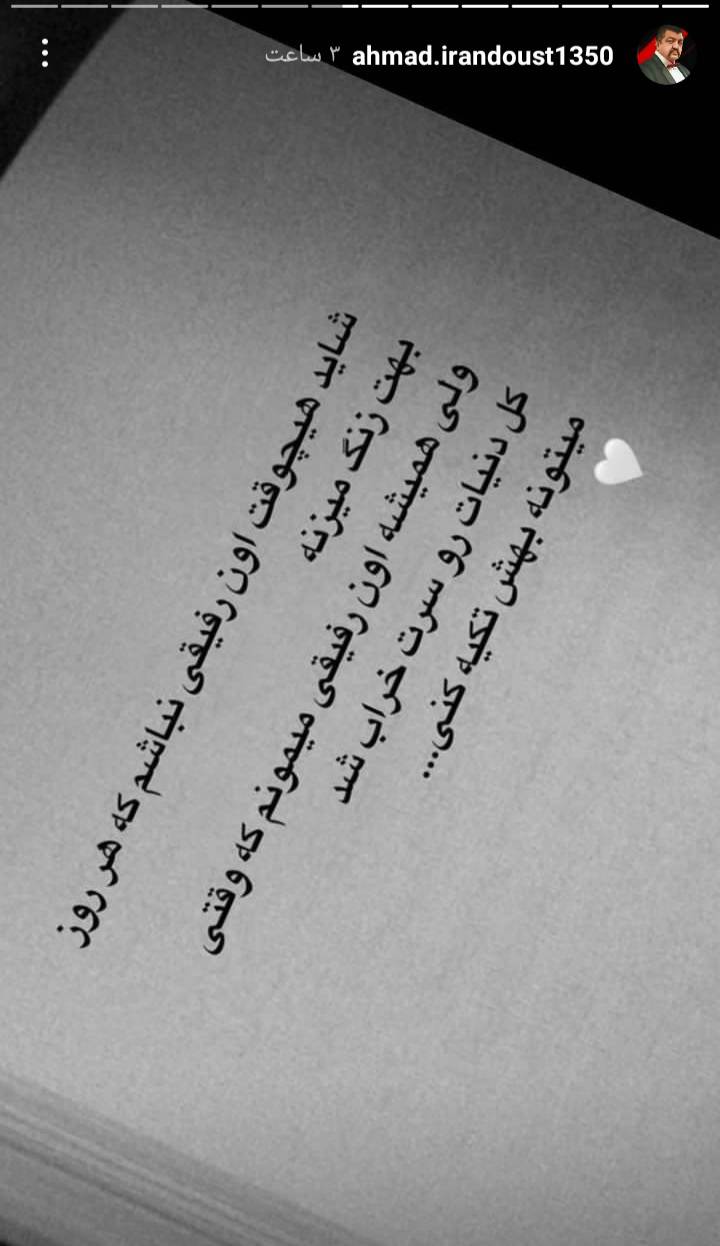 ahmad.irandoust1350 ۳ ساعت
شاید هیچوقت اون رفیقی نباشم که هر روز
بهت زنگ میزنه
ولی همیشه اون رفیقی میمونم که وقتی
کل دنیات رو سرت خراب شد
میتونه بهش تکیه کنی...